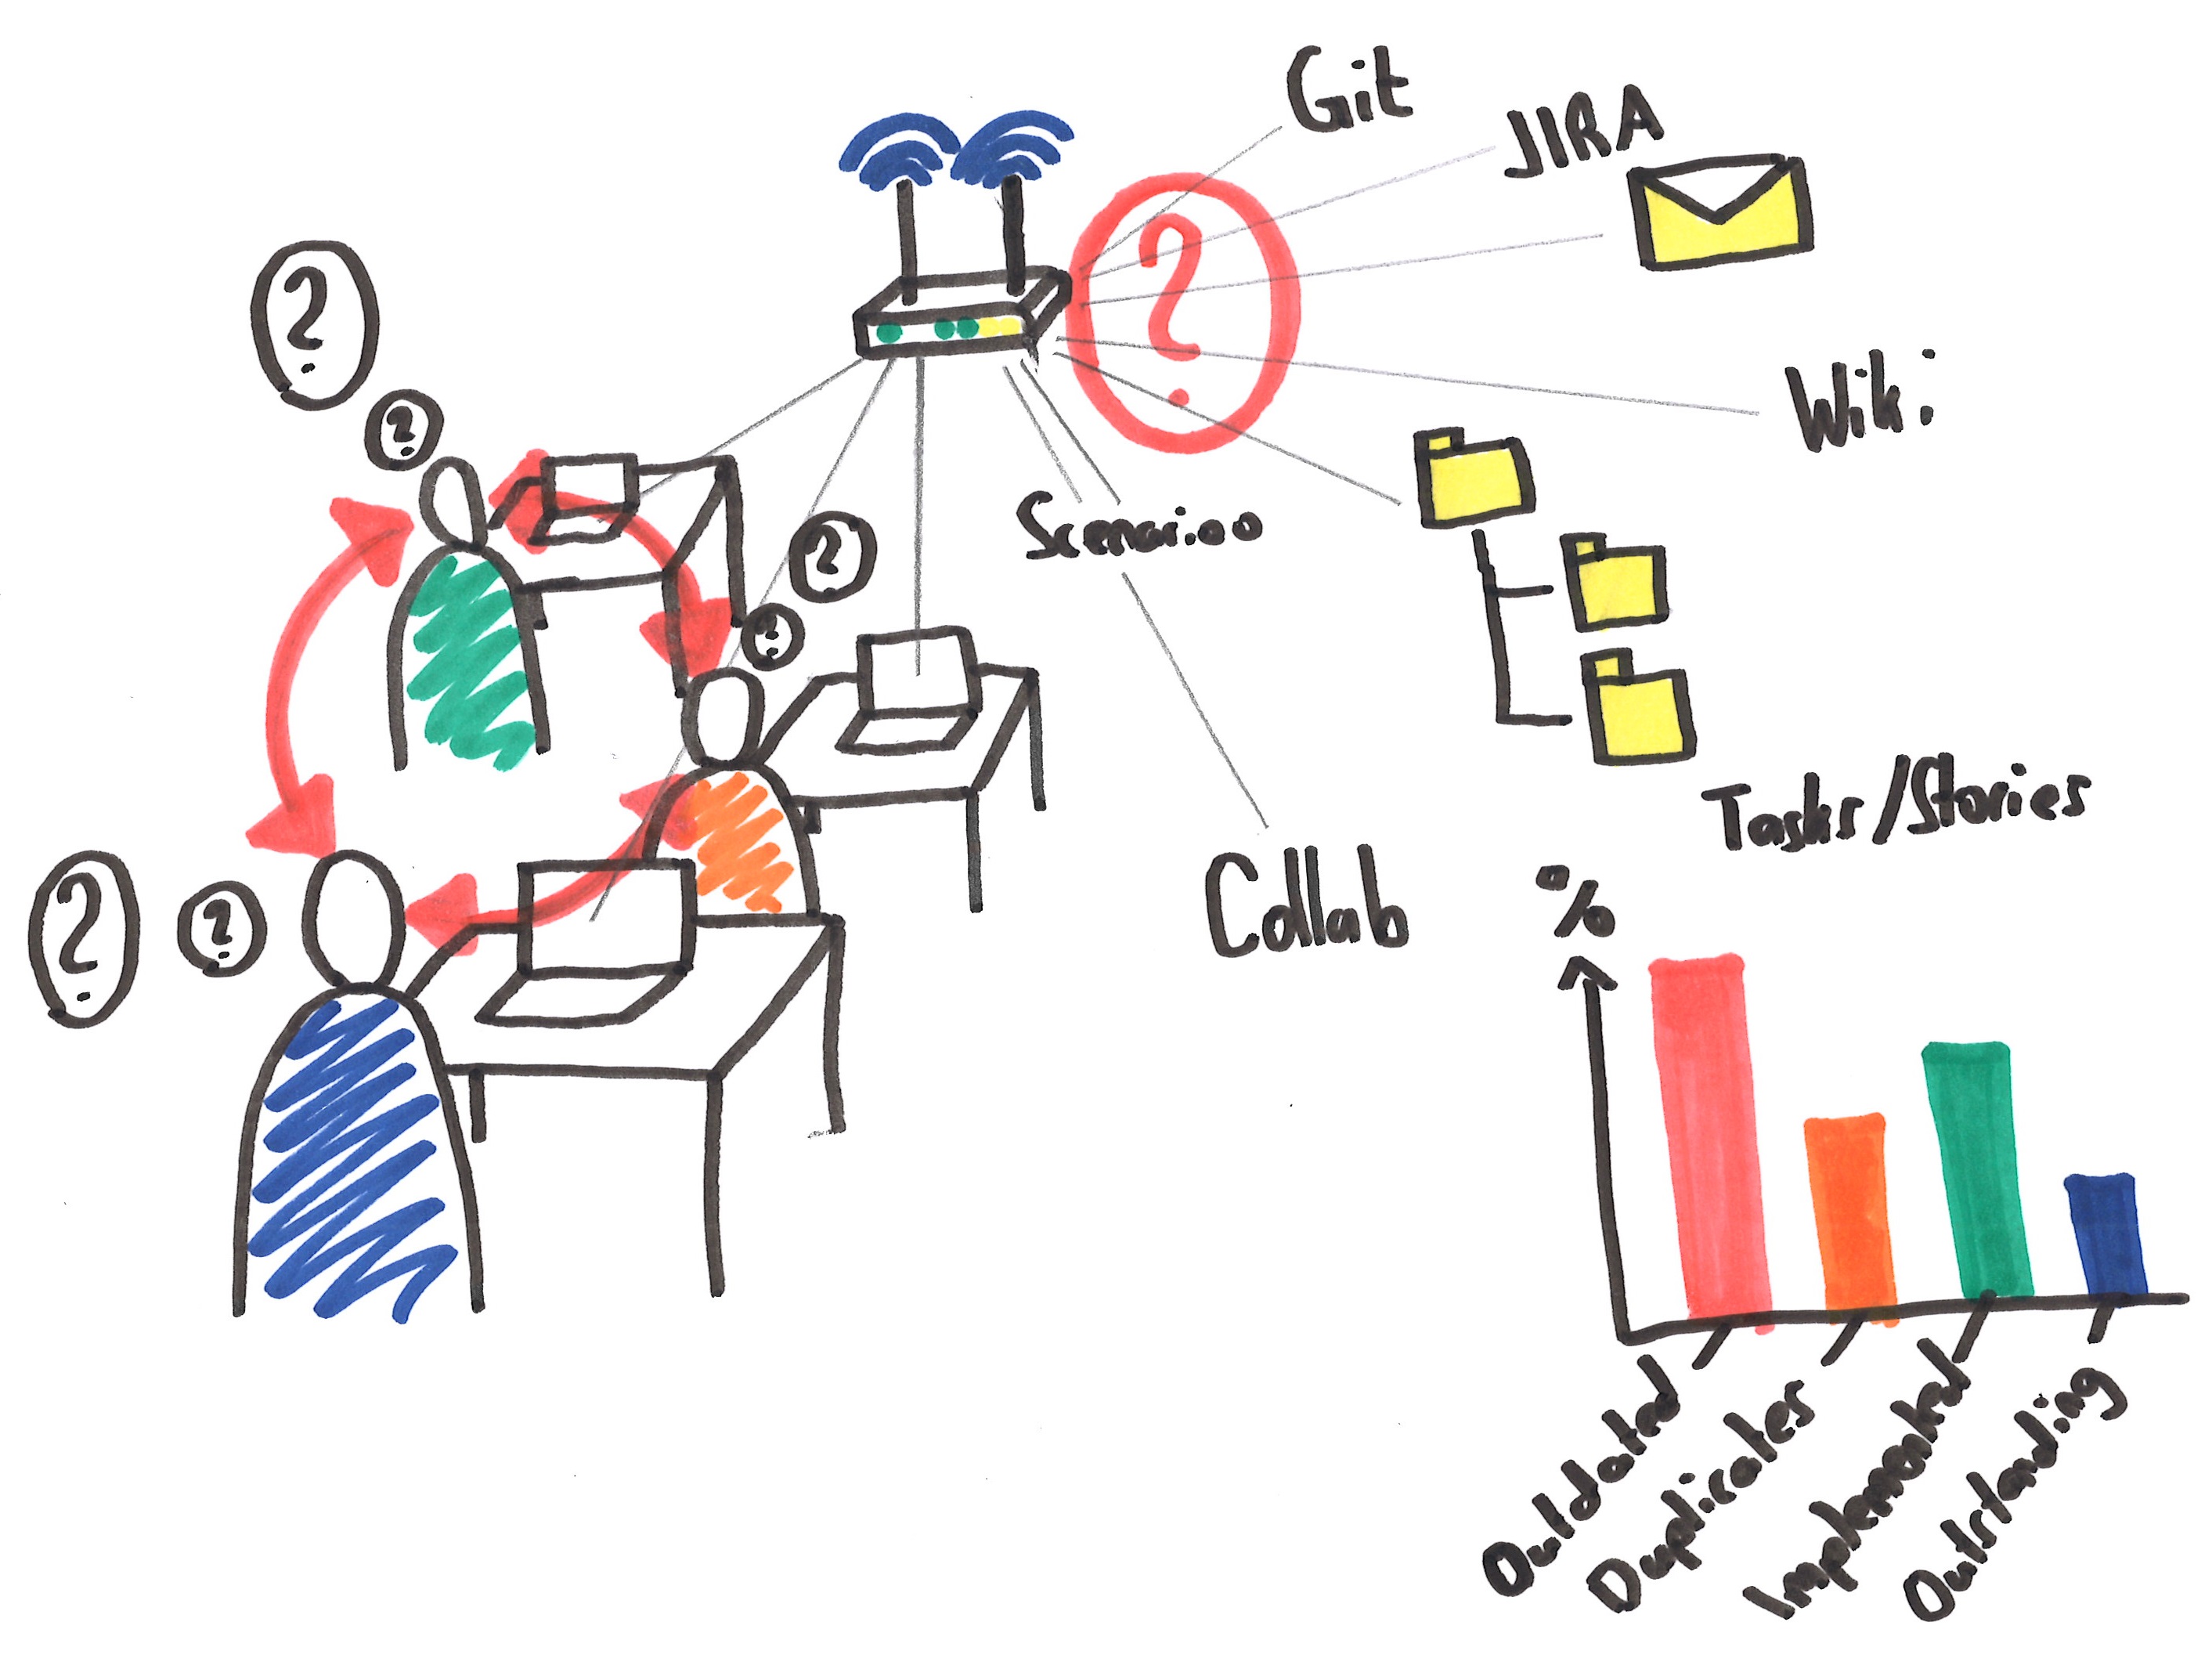 Git
JIRA
?
?
Wiki
?
Scenarioo
?
?
Tasks/Stories
Collab
?
?
%
Outdated
Duplicates
Implemented
Outstanding